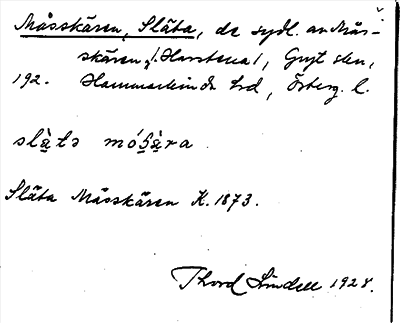 Måsskären, Släta, de sydl. av Mås-
skären, (: Harstena), Gryt skn,
192. Hammarkinds hd, Österg. l.
slàtə mó
Släta Måsskären K. 1873.
Thord Lindell 1928.